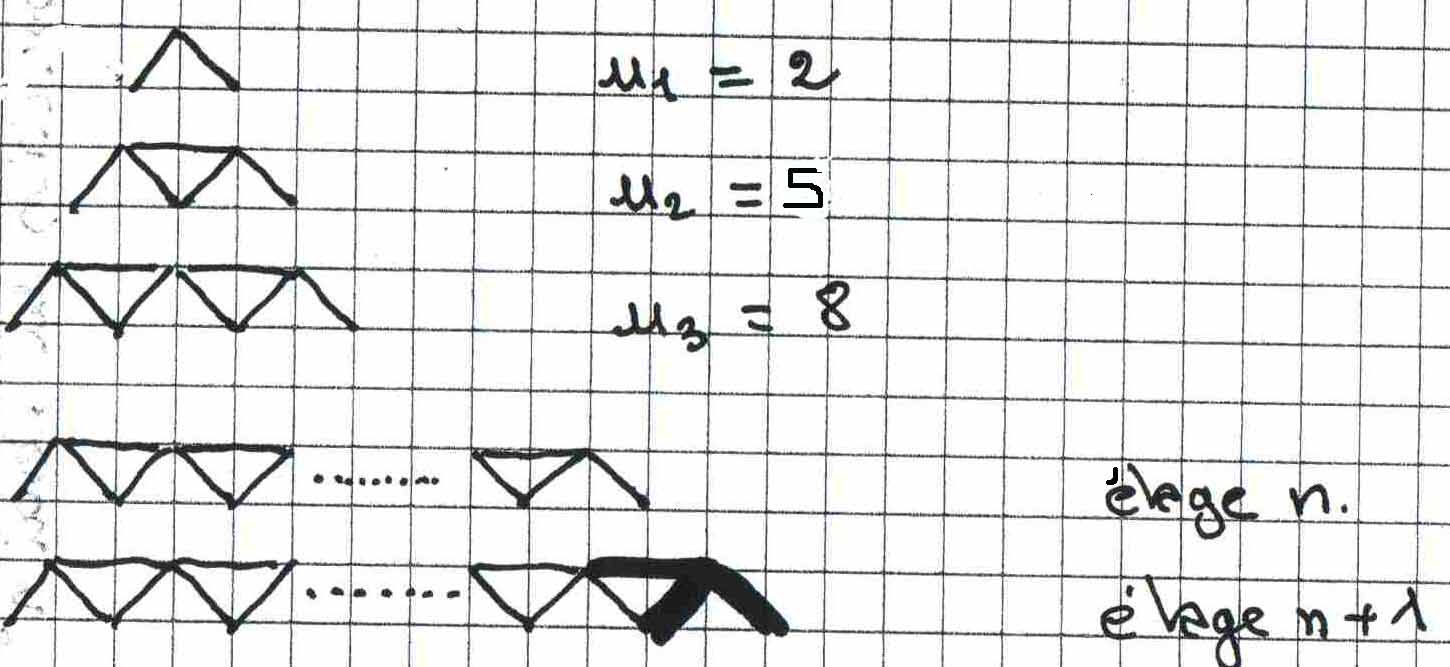 u₁ = 2
u₂ = 5
u₃ = 8
étage n.
étage n + 1